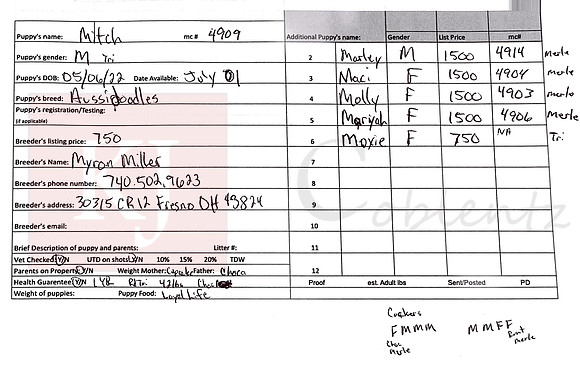 Puppy's name: Mitch mc# 4909
Additional Puppy's name: Gender List Price mc#
Puppy's gender: M Tri
2 Marley M 1500 4914 Merle
Puppy's DOB: 05/06/22 Date Available: July 01
3 Maci F 1500 4904 merle
Puppy's breed: Aussiedoodles
4 Molly F 1500 4903 merle
Puppy's registration/Testing:
(if applicable)
5 Mariyah F 1500 4906 Merle
Breeder's listing price: 750
6 Moxie F 750 NA Tri
Breeder's Name: Myron Miller
7
Breeder's phone number: 740.502.9623
8
Breeder's address: 30315 CR 12 Fresno OH 43824
9
Coblentz
Breeder's email:
10
Brief Description of puppy and parents: Litter #:
11
Vet Checked Y/N UTD on shots Y/N 10% 15% 20% TDW
Parents on Property Y/N Weight Mother: Father: Choco
12
Health Guarentee Y/N 1 YR Rd Tri 42 lbs
Proof est. Adult lbs Sent/Posted PD
Weight of puppies: Puppy Food: Loyal Life
FMMM MMFF
Choc
merle
merle